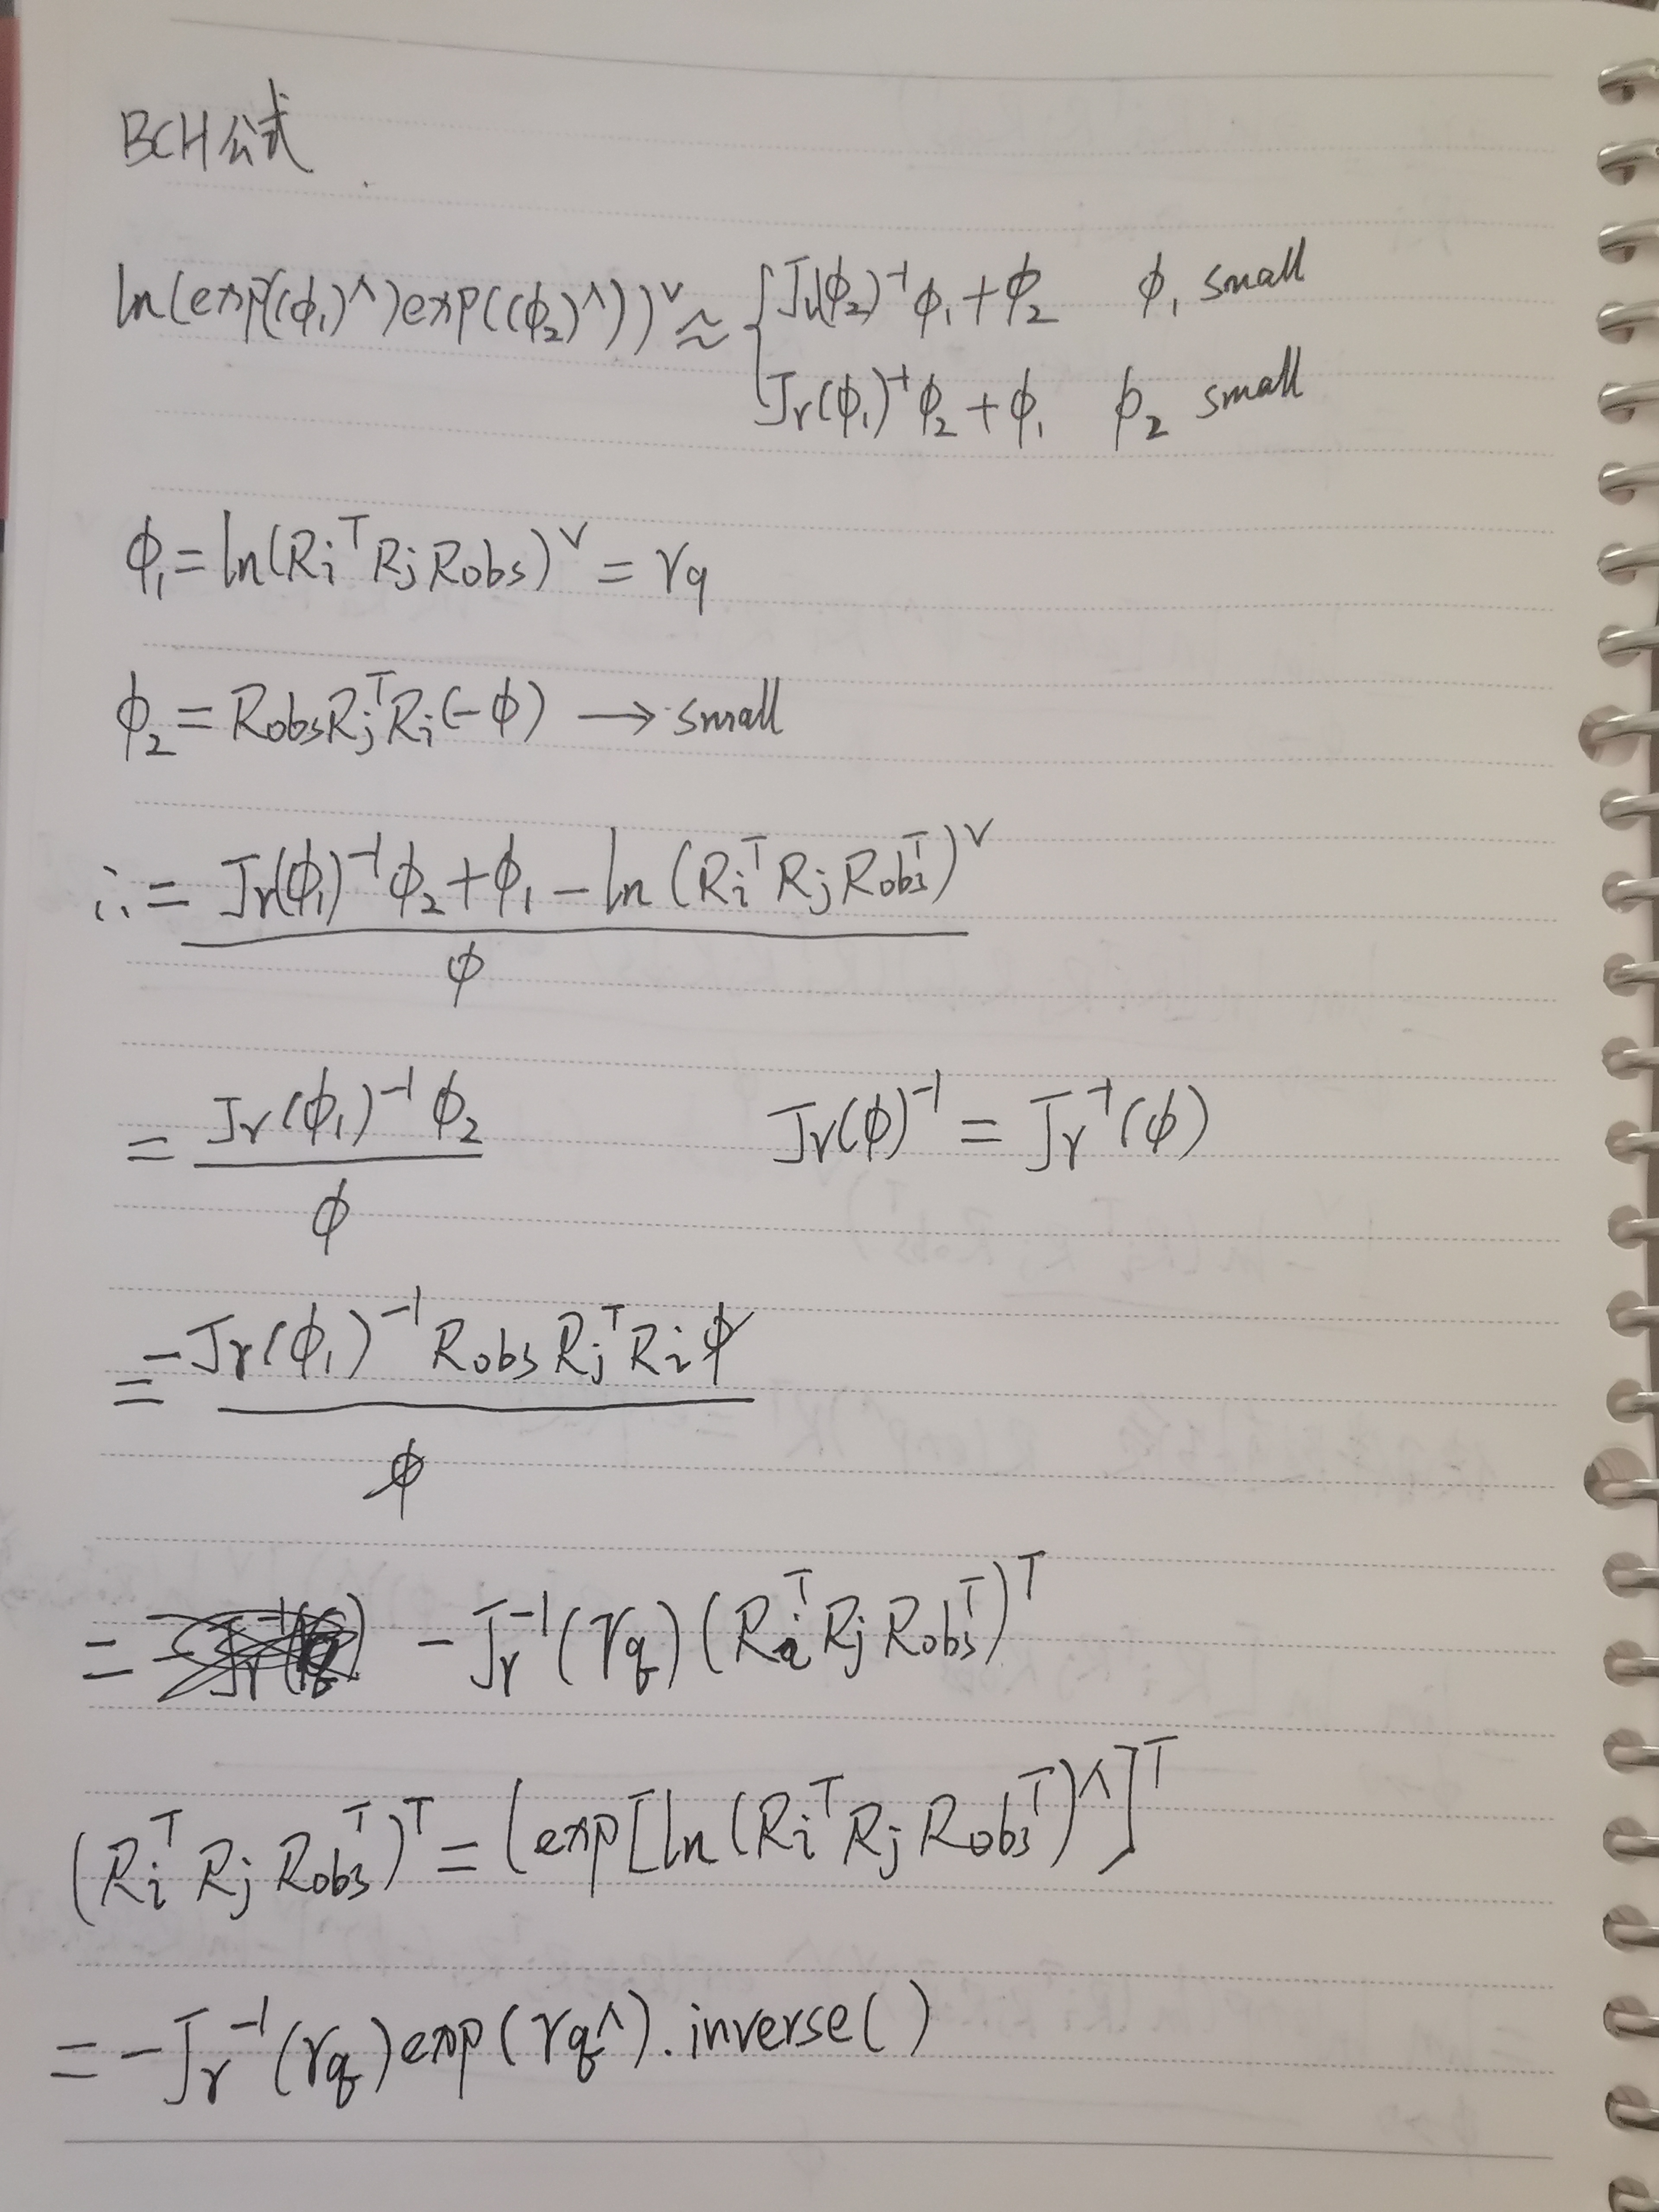 BCH公式
ln(exp((ϕ₁)^)exp((ϕ₂)^))ᵛ ≈ { Jl(ϕ₂)⁻¹ϕ₁+ϕ₂ ϕ₁ small
Jr(ϕ₁)⁻¹ϕ₂+ϕ₁ ϕ₂ small
ϕ₁=ln(RiᵀRjRobs)ᵛ=rq
ϕ₂=RobsRjᵀRi(-ϕ) → small
∴ = Jr(ϕ₁)⁻¹ϕ₂+ϕ₁-ln(RiᵀRjRobsᵀ)ᵛ
ϕ
= Jr(ϕ₁)⁻¹ϕ₂ Jr(ϕ)⁻¹=Jr⁻¹(ϕ)
ϕ
= -Jr(ϕ₁)⁻¹RobsRjᵀRiϕ
ϕ
= -Jr⁻¹(rq)(RiᵀRjRobsᵀ)ᵀ
(RiᵀRjRobsᵀ)ᵀ=(exp[ln(RiᵀRjRobsᵀ)^]ᵀ
= -Jr⁻¹(rq)exp(rq^).inverse()